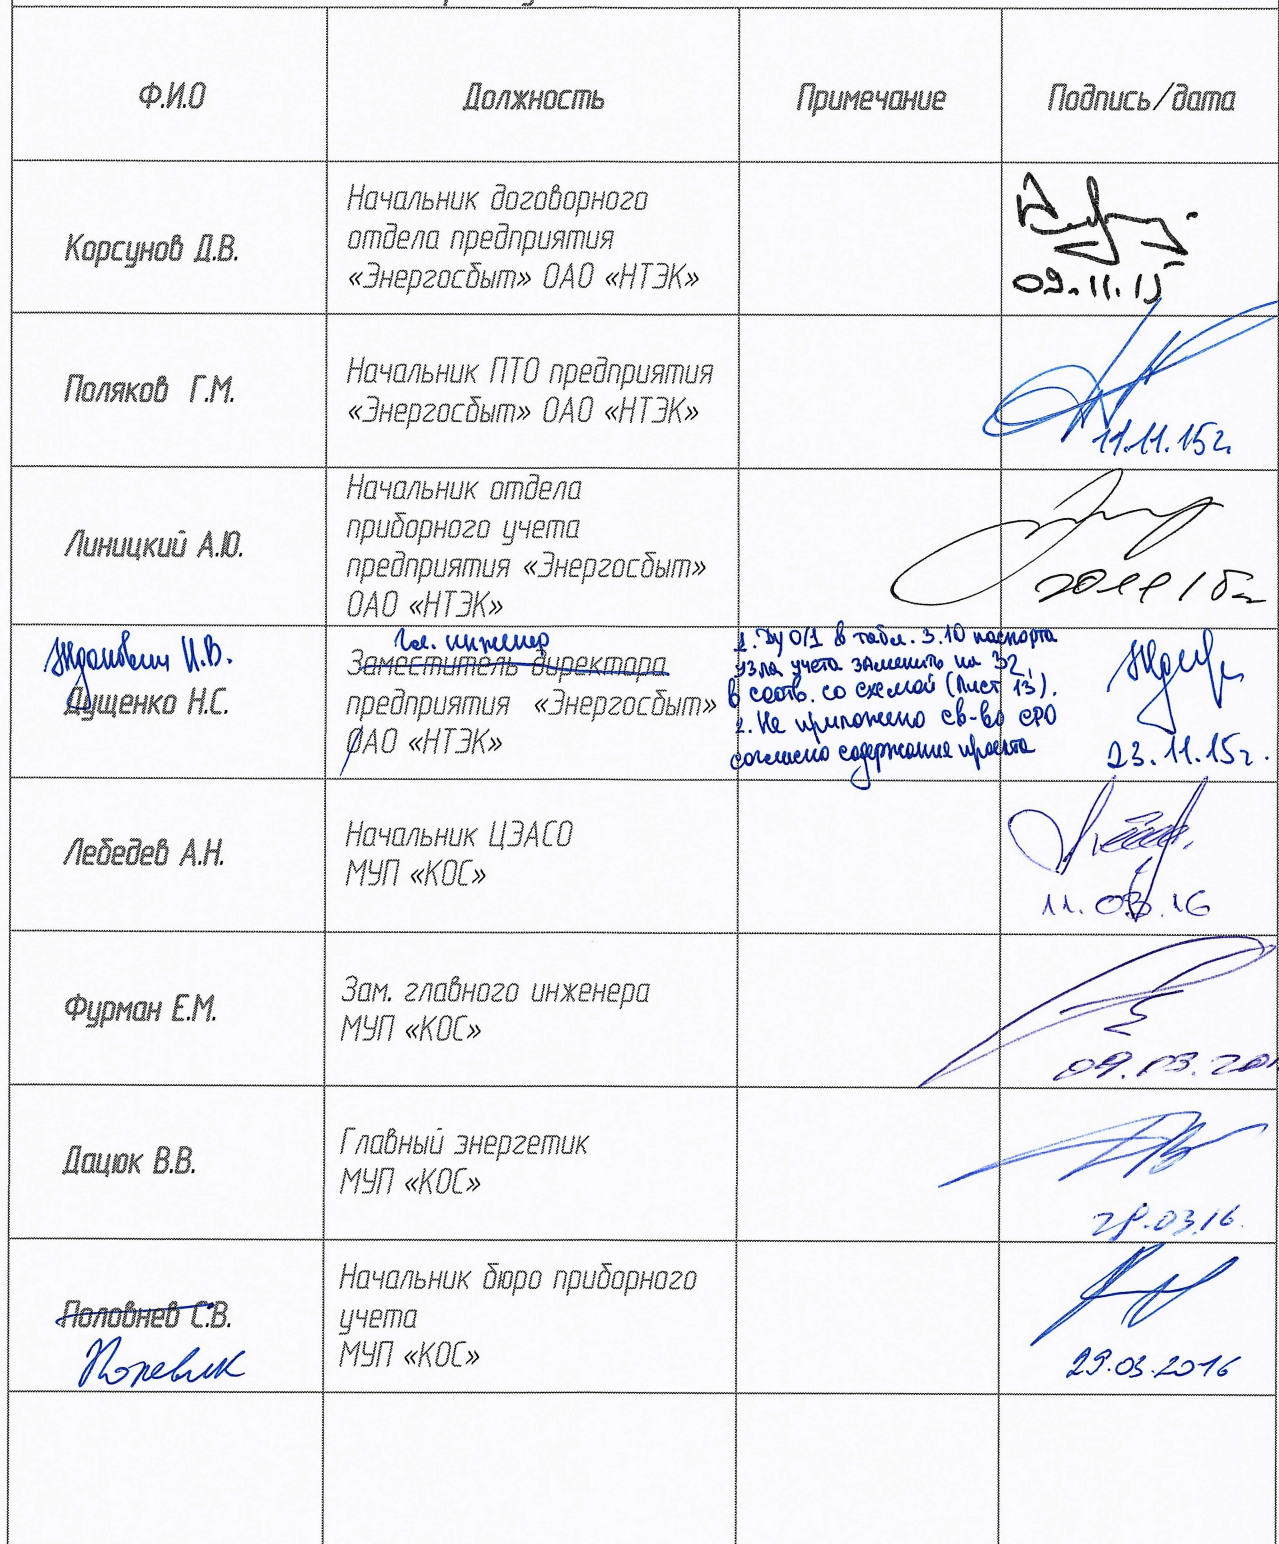 Ф.И.О
Должность
Примечание
Подпись/дата
Корсунов Д.В.
Начальник договорного
отдела предприятия
«Энергосбыт» ОАО «НТЭК»
09.11.15
Поляков Г.М.
Начальник ПТО предприятия
«Энергосбыт» ОАО «НТЭК»
11.11.15г.
Линицкий А.Ю.
Начальник отдела
приборного учета
предприятия «Энергосбыт»
ОАО «НТЭК»
Жданович И.В.
Дущенко Н.С.
Гл. инженер
Заместитель директора
предприятия «Энергосбыт»
ОАО «НТЭК»
1. Ду О/1 в табл. 3.10 паспорта
узла учета заменить на 32,
в соотв. со схемой (Лист 13).
2. Не приложено св-во СРО
согласно содержания проекта
23.11.15г.
Лебедев А.Н.
Начальник ЦЭАСО
МУП «КОС»
11.03.16
Фурман Е.М.
Зам. главного инженера
МУП «КОС»
09.03.201
Дацюк В.В.
Главный энергетик
МУП «КОС»
28.03.16.
Половнев С.В.
Начальник бюро приборного
учета
МУП «КОС»
29.03.2016